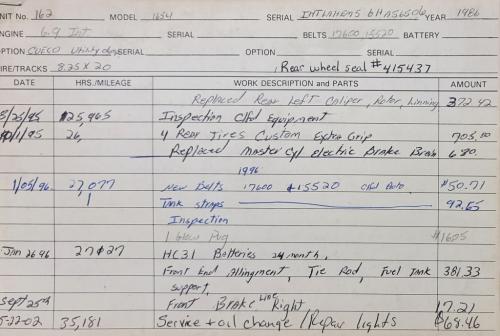 UNIT No. 162 MODEL 1654 SERIAL YEAR 1986
ENGINE 6.9 Int SERIAL BELTS 17600 15520 BATTERY
OPTION SERIAL OPTION SERIAL
TIRE/TRACKS 8.25 X 20 Rear wheel seal #415437
DATE HRS./MILEAGE WORK DESCRIPTION and PARTS AMOUNT
Replaced Rear Left Caliper, Rotor, Linning 372.42
8/25/95 25,965 Inspection Equipment
10/1/95 26, 4 Rear Tires Custom Extra Grip 705.00
Replaced Master Cyl electric Brake 6.80
1996
1/05/96 27,077 New Belts 17600 + 15520 Auto $50.71
Tank straps 92.65
Inspection
1 Glow Pug $16.05
Jan 26 96 27127 HC31 Batteries 24 month,
Front End Allingment, Tie Rod, Fuel Tank 381.33
support,
Sept 25th Front BRAKE LINE Right 17.21
5-22-02 35,181 Service + oil change / Repair lights $68.46